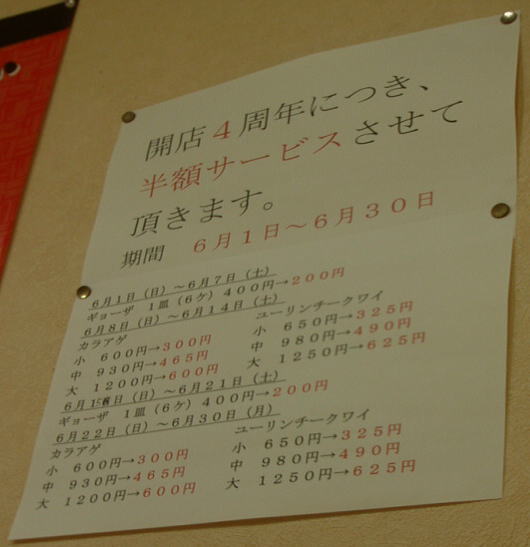 開店４周年につき、
半額サービスさせて
頂きます。
期間　６月１日～６月３０日
６月１日（日）～６月７日（土）
ギョーザ　１皿（６ケ）４００円→２００円
６月８日（日）～６月１４日（土）
カラアゲ　ユーリンチークワイ
小　６００円→３００円　小　６５０円→３２５円
中　９３０円→４６５円　中　９８０円→４９０円
大　１２００円→６００円　大　１２５０円→６２５円
６月１５日（日）～６月２１日（土）
ギョーザ　１皿（６ケ）４００円→２００円
６月２２日（日）～６月３０日（月）
カラアゲ　ユーリンチークワイ
小　６００円→３００円　小　６５０円→３２５円
中　９３０円→４６５円　中　９８０円→４９０円
大　１２００円→６００円　大　１２５０円→６２５円